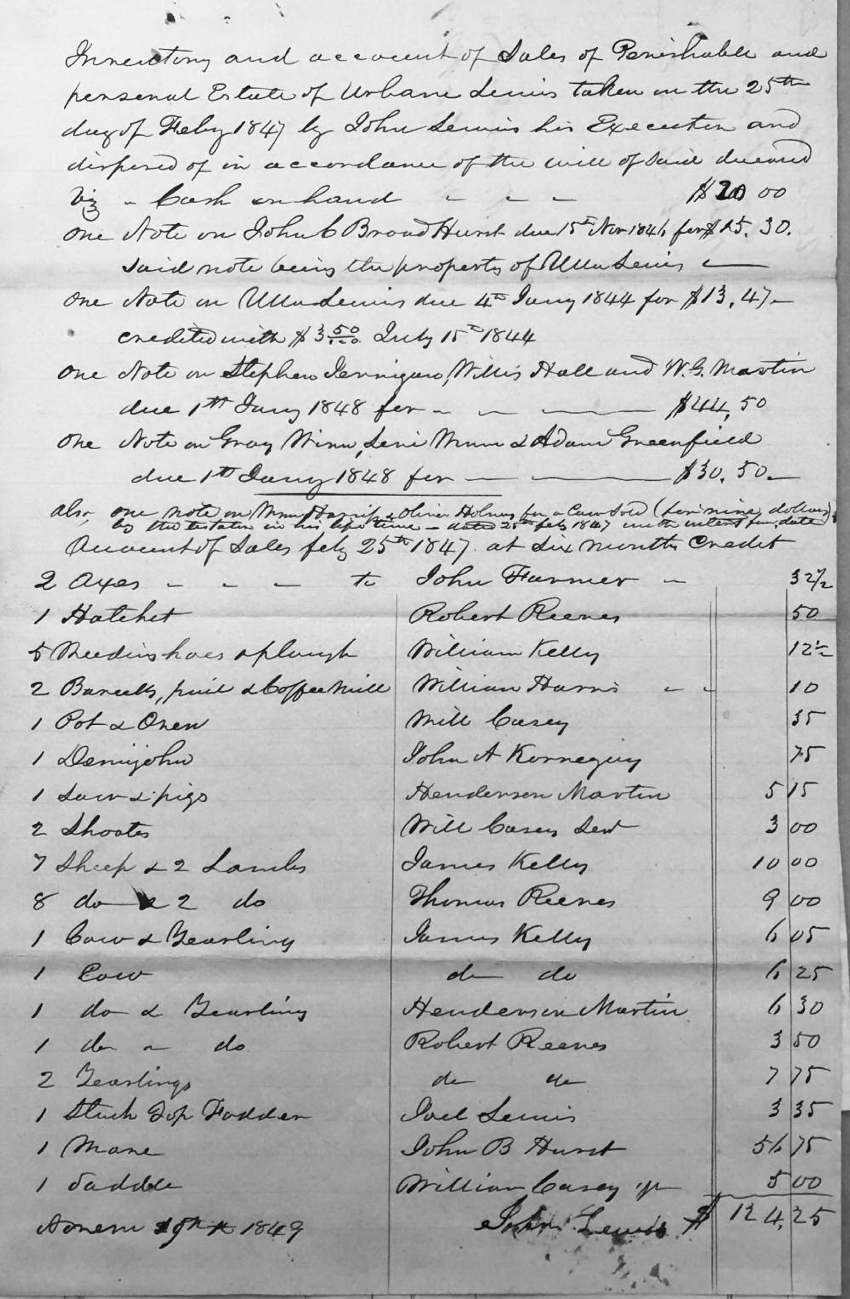 Inventory and account of Sales of Perishable and
personal Estate of Urbane Lewis taken on the 25th
day of Feby 1847 by John Lewis his Executor and
disposed of in accordance of the will of said deceased
Viz - Cash on hand - - - $20 00
One Note on John C Broad Hurst due 15th Nov 1846 for $15.30.
said note being the property of Ulla Lewis —
One Note on Ulla Lewis due 4th Jany 1844 for $13.47 —
credited with $3 50/100 July 15th 1844
One Note on Stephen Jernigan, Willis Hall and W.G. Martin
due 1th Jany 1848 for - - — — $44,50
One Note on Gray Winn, Levi Winn & Adam Greenfield
due 1th Jany 1848 for — — — $30.50. —
also, one note on Wm Harris & Oliver Holmes for a Cow Sold (for nine dollars)
by the testator in his life time - dated 25th feby 1847 with interest from date
Account of Sales feby 25th 1847. at six months credit
2 Axes - - - to John Farmer - 32 1/2
1 Hatchet Robert Reeves 50
5 Weeding hoes & plough William Kelly 12 1/2
2 Barrells, pail & Coffee Mill William Harris - - 10
1 Pot & Oven Will Casey 35
1 Demijohn John A Kornegay 75
1 Sow & pigs Henderson Martin 5 15
2 Shoates Will Casey Senr 3 00
7 Sheep & 2 Lambs James Kelly 10 00
8 do & 2 do Thomas Reeves 9 00
1 Cow & Yearling James Kelly 6 05
1 Cow do do 6 25
1 do & Yearling Henderson Martin 6 30
1 do - do Robert Reeves 3 50
2 Yearlings do do 7 75
1 Stack Top Fodder Joel Lewis 3 35
1 Mare John B Hurst 56 75
1 Saddle William Casey jr 5 00
1849 John Lewis $ 124,25